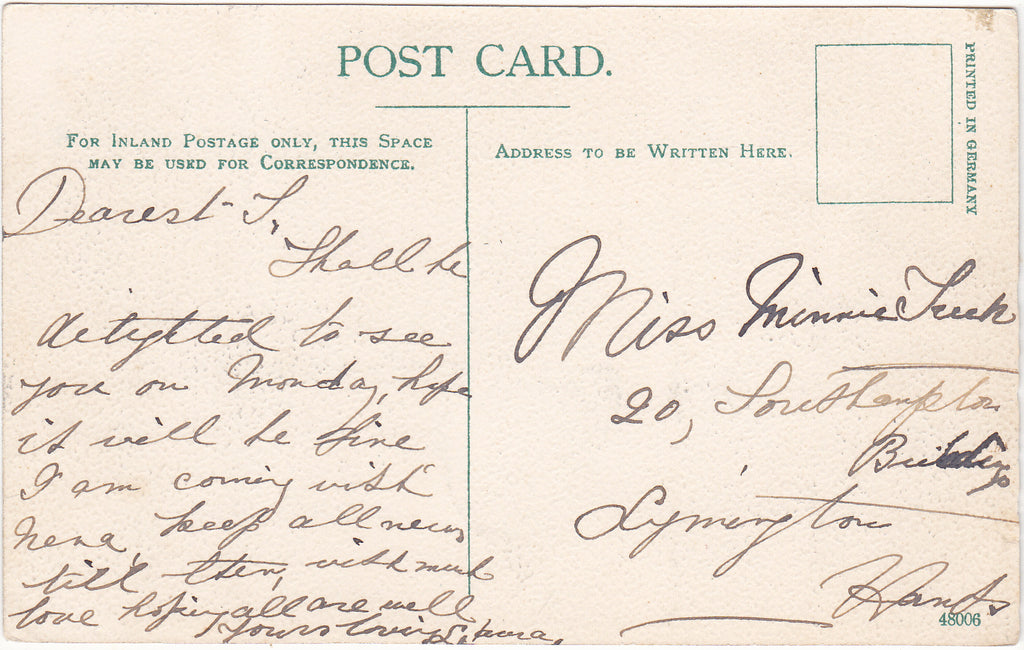 POST CARD.
FOR INLAND POSTAGE ONLY, THIS SPACE
MAY BE USED FOR CORRESPONDENCE.
Dearest
Shall be
delighted to see
you on Monday, hope
it will be fine
I am coming with
Nena, keep all news
till then, with much
love hoping all are well
Yours loving
ADDRESS TO BE WRITTEN HERE.
PRINTED IN GERMANY
Miss Minnie
20, Southampton
Buildings
Lymington
Hants
48006